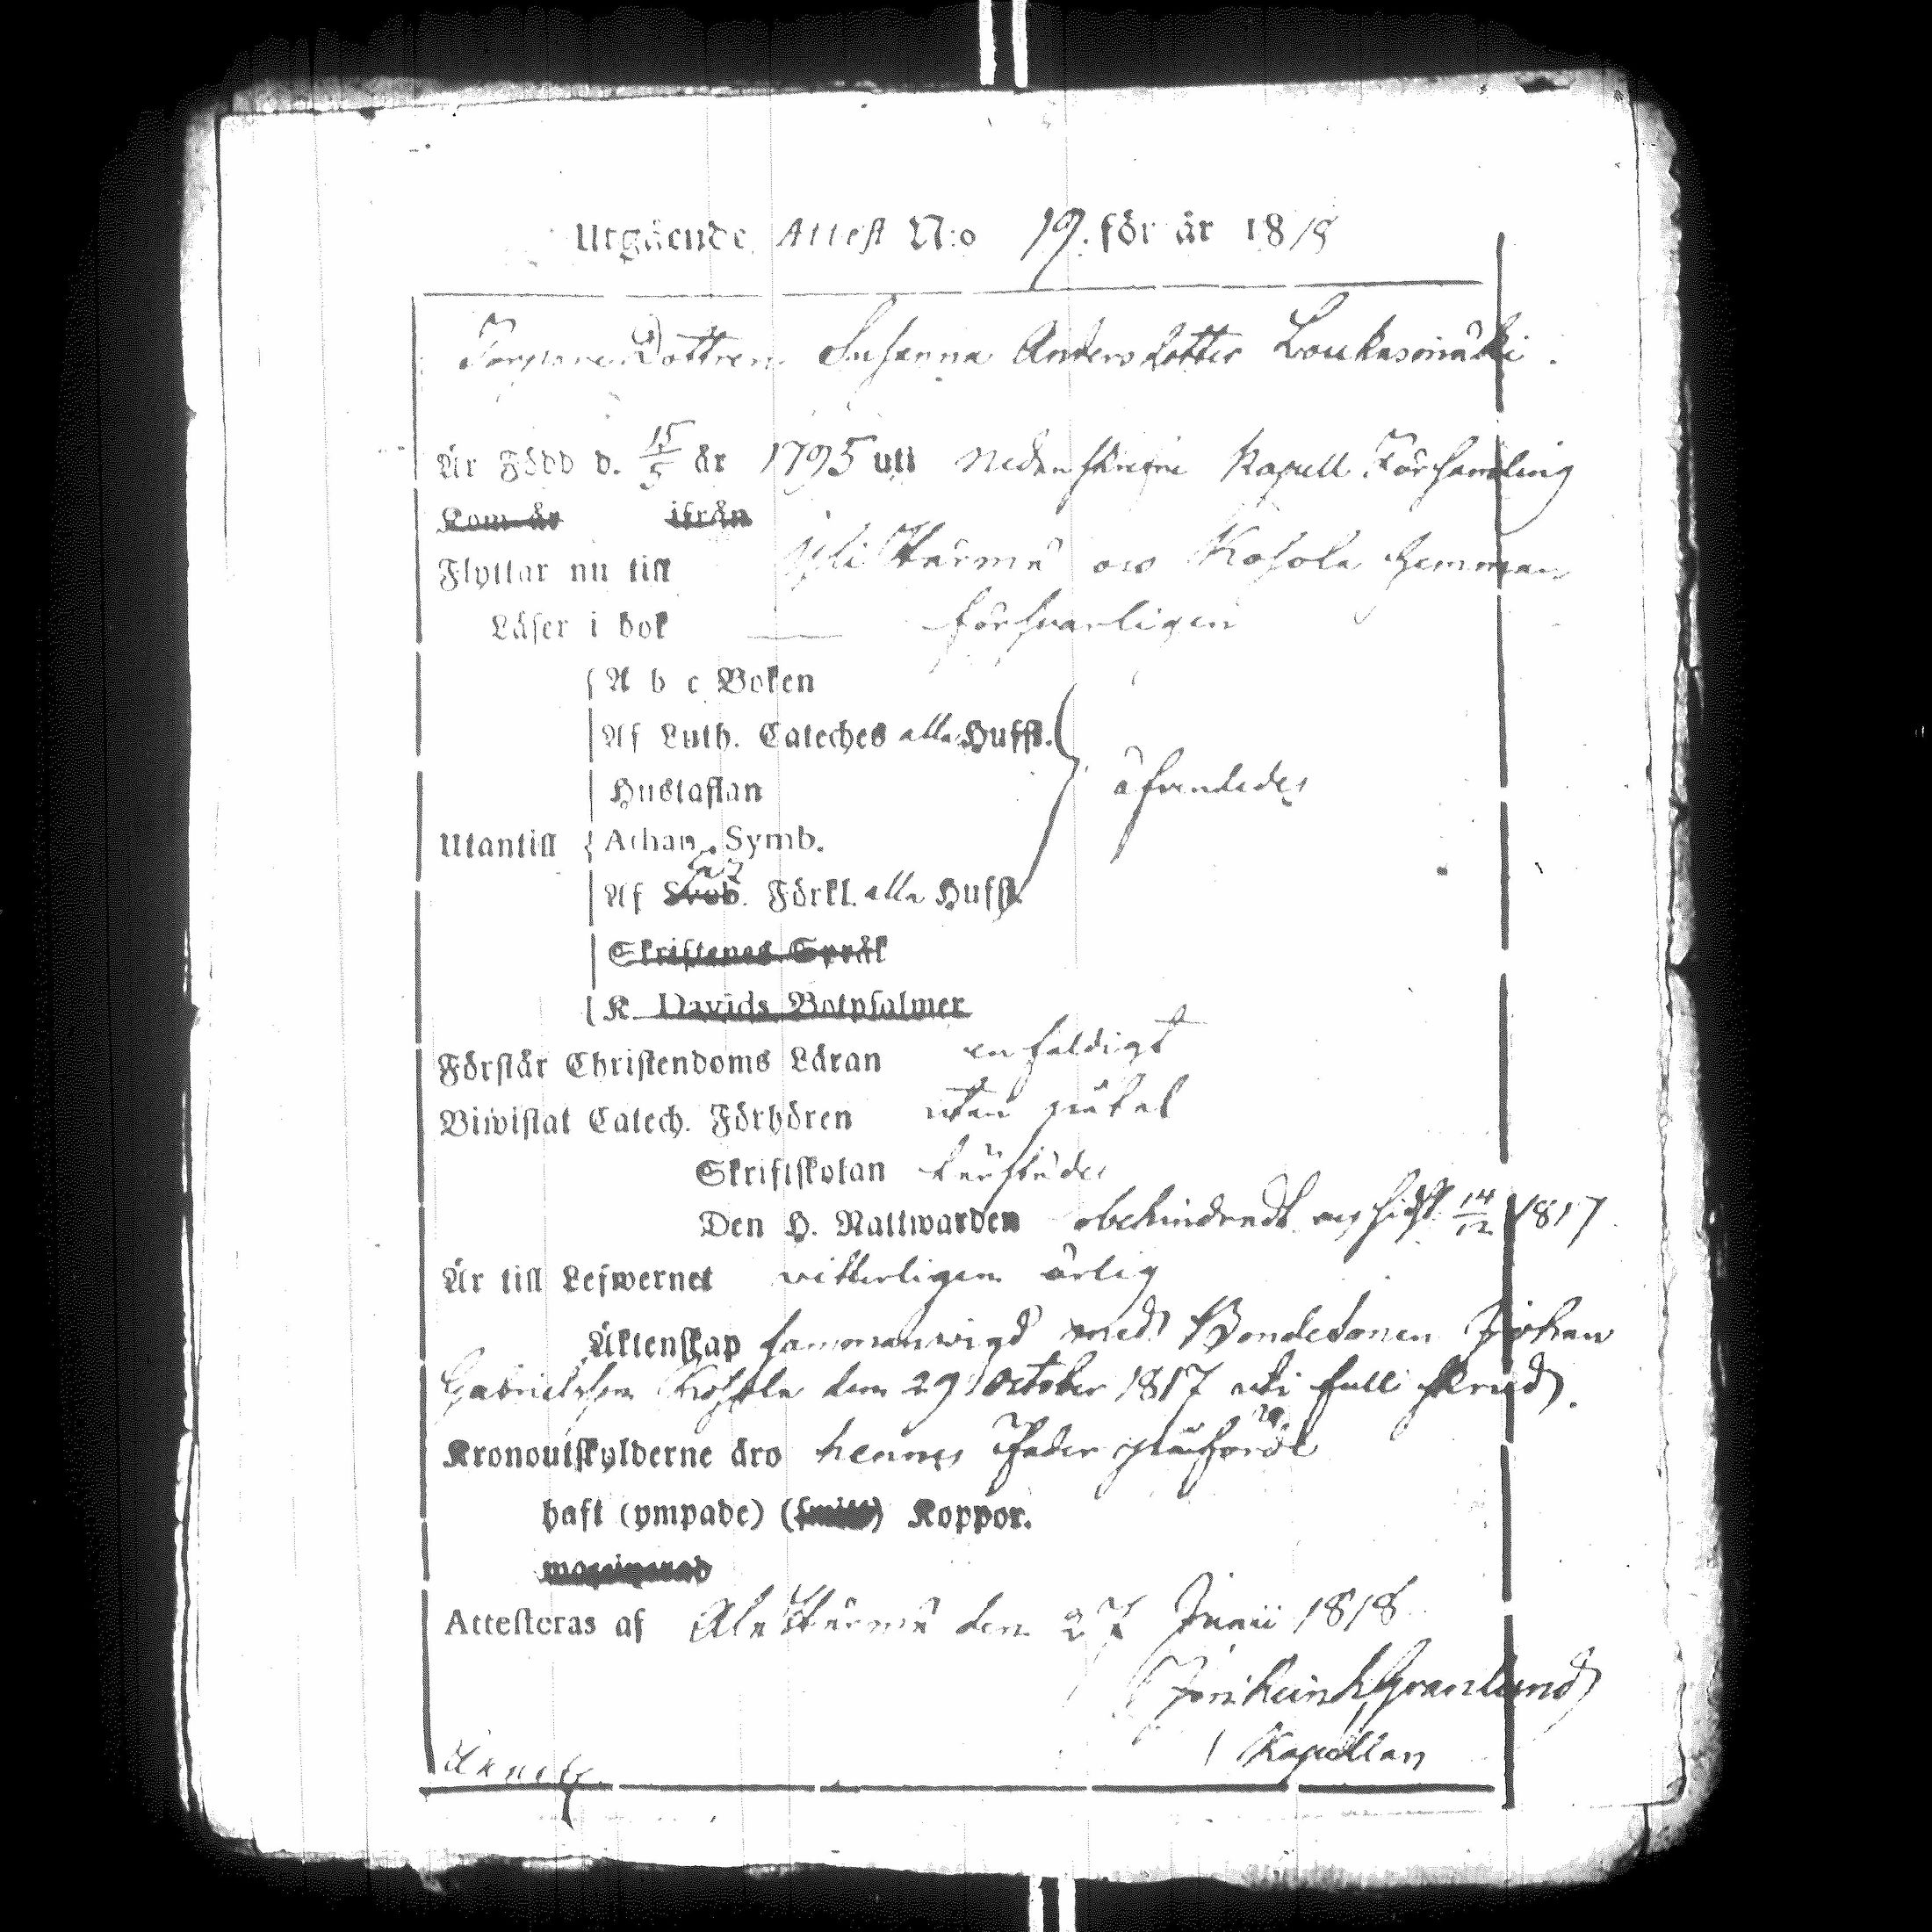 Utgående Attest N:o 19. för år 1818
Dottren Susanna Andersdotter Loukasmäki.
Är Född d. 15/5 år 1795 uti nedanskrefne Kapell Församling
Kom år ifrån
Flyttar nu till Ylihärmä oco Kosola Hemman
Läser i bok — försvarligen
A b c Boken
Af Luth. Cateches alla Hufst.
Hustaflan
Utantill Athan. Symb.
Af Sveb. Förkl. alla Hufst.
Skriftenes Språk
K. Davids Botpsalmer
Förstår Christendoms Läran enfaldigt
Biwistat Catech. Förhören utan
Skriftskolan
Den H. Nattwarden obehindradt sist 14/12 1817
Är till Lefwernet vitterligen ärlig
Äktenskap sammanvigd med Bondesonen Johan
Gabrielsson Kosola den 29 October 1817 uti full skrud.
Kronoutskylderne äro hennes Fader påförde
haft (ympade) Koppor.
Attesteras af Alahärmä den 27 Junii 1818
Granlund
Kapellan